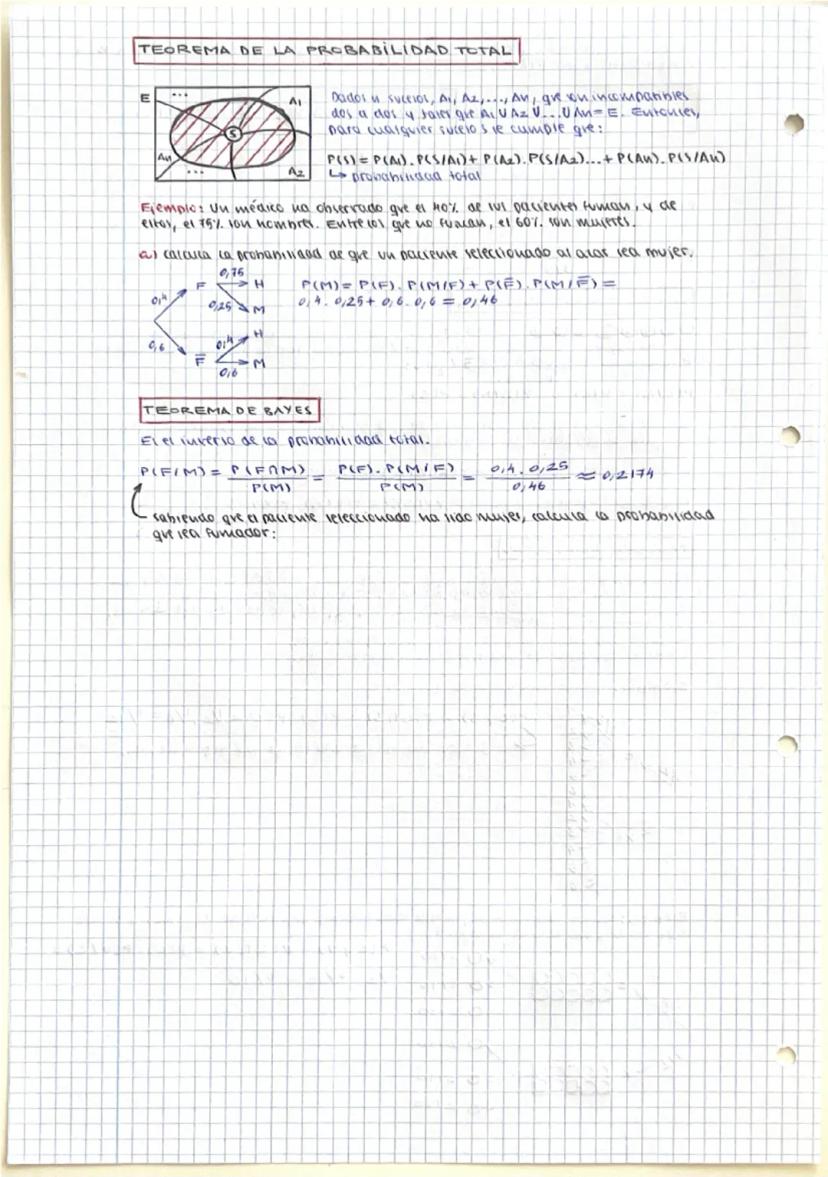 TEOREMA DE LA PROBABILIDAD TOTAL
E ... A1
S
An ... A2
Dados n sucesos, A1, A2, ..., An, que son incompatibles
dos a dos y tales que A1 U A2 U ... U An = E. Entonces,
para cualquier suceso S se cumple que:
P(S) = P(A1). P(S/A1) + P(A2). P(S/A2)... + P(An). P(S/An)
↳ probabilidad total
Ejemplo: Un médico ha observado que el 40% de sus pacientes fuman, y de
estos, el 75% son hombres. Entre los que no fuman, el 60% son mujeres.
a) calcula la probabilidad de que un paciente seleccionado al azar sea mujer.
0,75
0,4 F H
0,25 M
0,6 0,4 H
F̅ M
0,6
P(M) = P(F). P(M/F) + P(F̅). P(M/F̅) =
0,4 . 0,25 + 0,6 . 0,6 = 0,46
TEOREMA DE BAYES
Es el inverso de la probabilidad total.
P(F/M) = P(F∩M) / P(M) = P(F). P(M/F) / P(M) = 0,4 . 0,25 / 0,46 ≈ 0,2174
sabiendo que el paciente seleccionado ha sido mujer, calcula la probabilidad
que sea fumador: